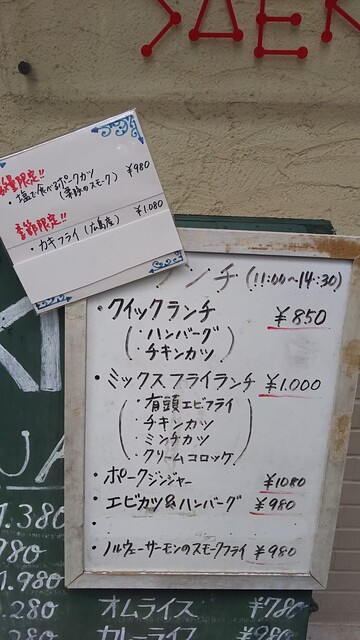 数量限定!!
・塩で食べるポークカツ ¥980
季節限定!!
・カキフライ(広島産) ¥1.080
ランチ(11:00〜14:30)
・クイックランチ ¥850
・ハンバーグ
・チキンカツ
・ミックスフライランチ ¥1.000
・有頭エビフライ
・チキンカツ
・ミンチカツ
・クリームコロッケ
・ポークジンジャー ¥1080
・エビカツ&ハンバーグ ¥980
・ノルウェーサーモンのスモークフライ ¥980
1.380
780
1.980
.280 オムライス ¥780
.280 カレーライス